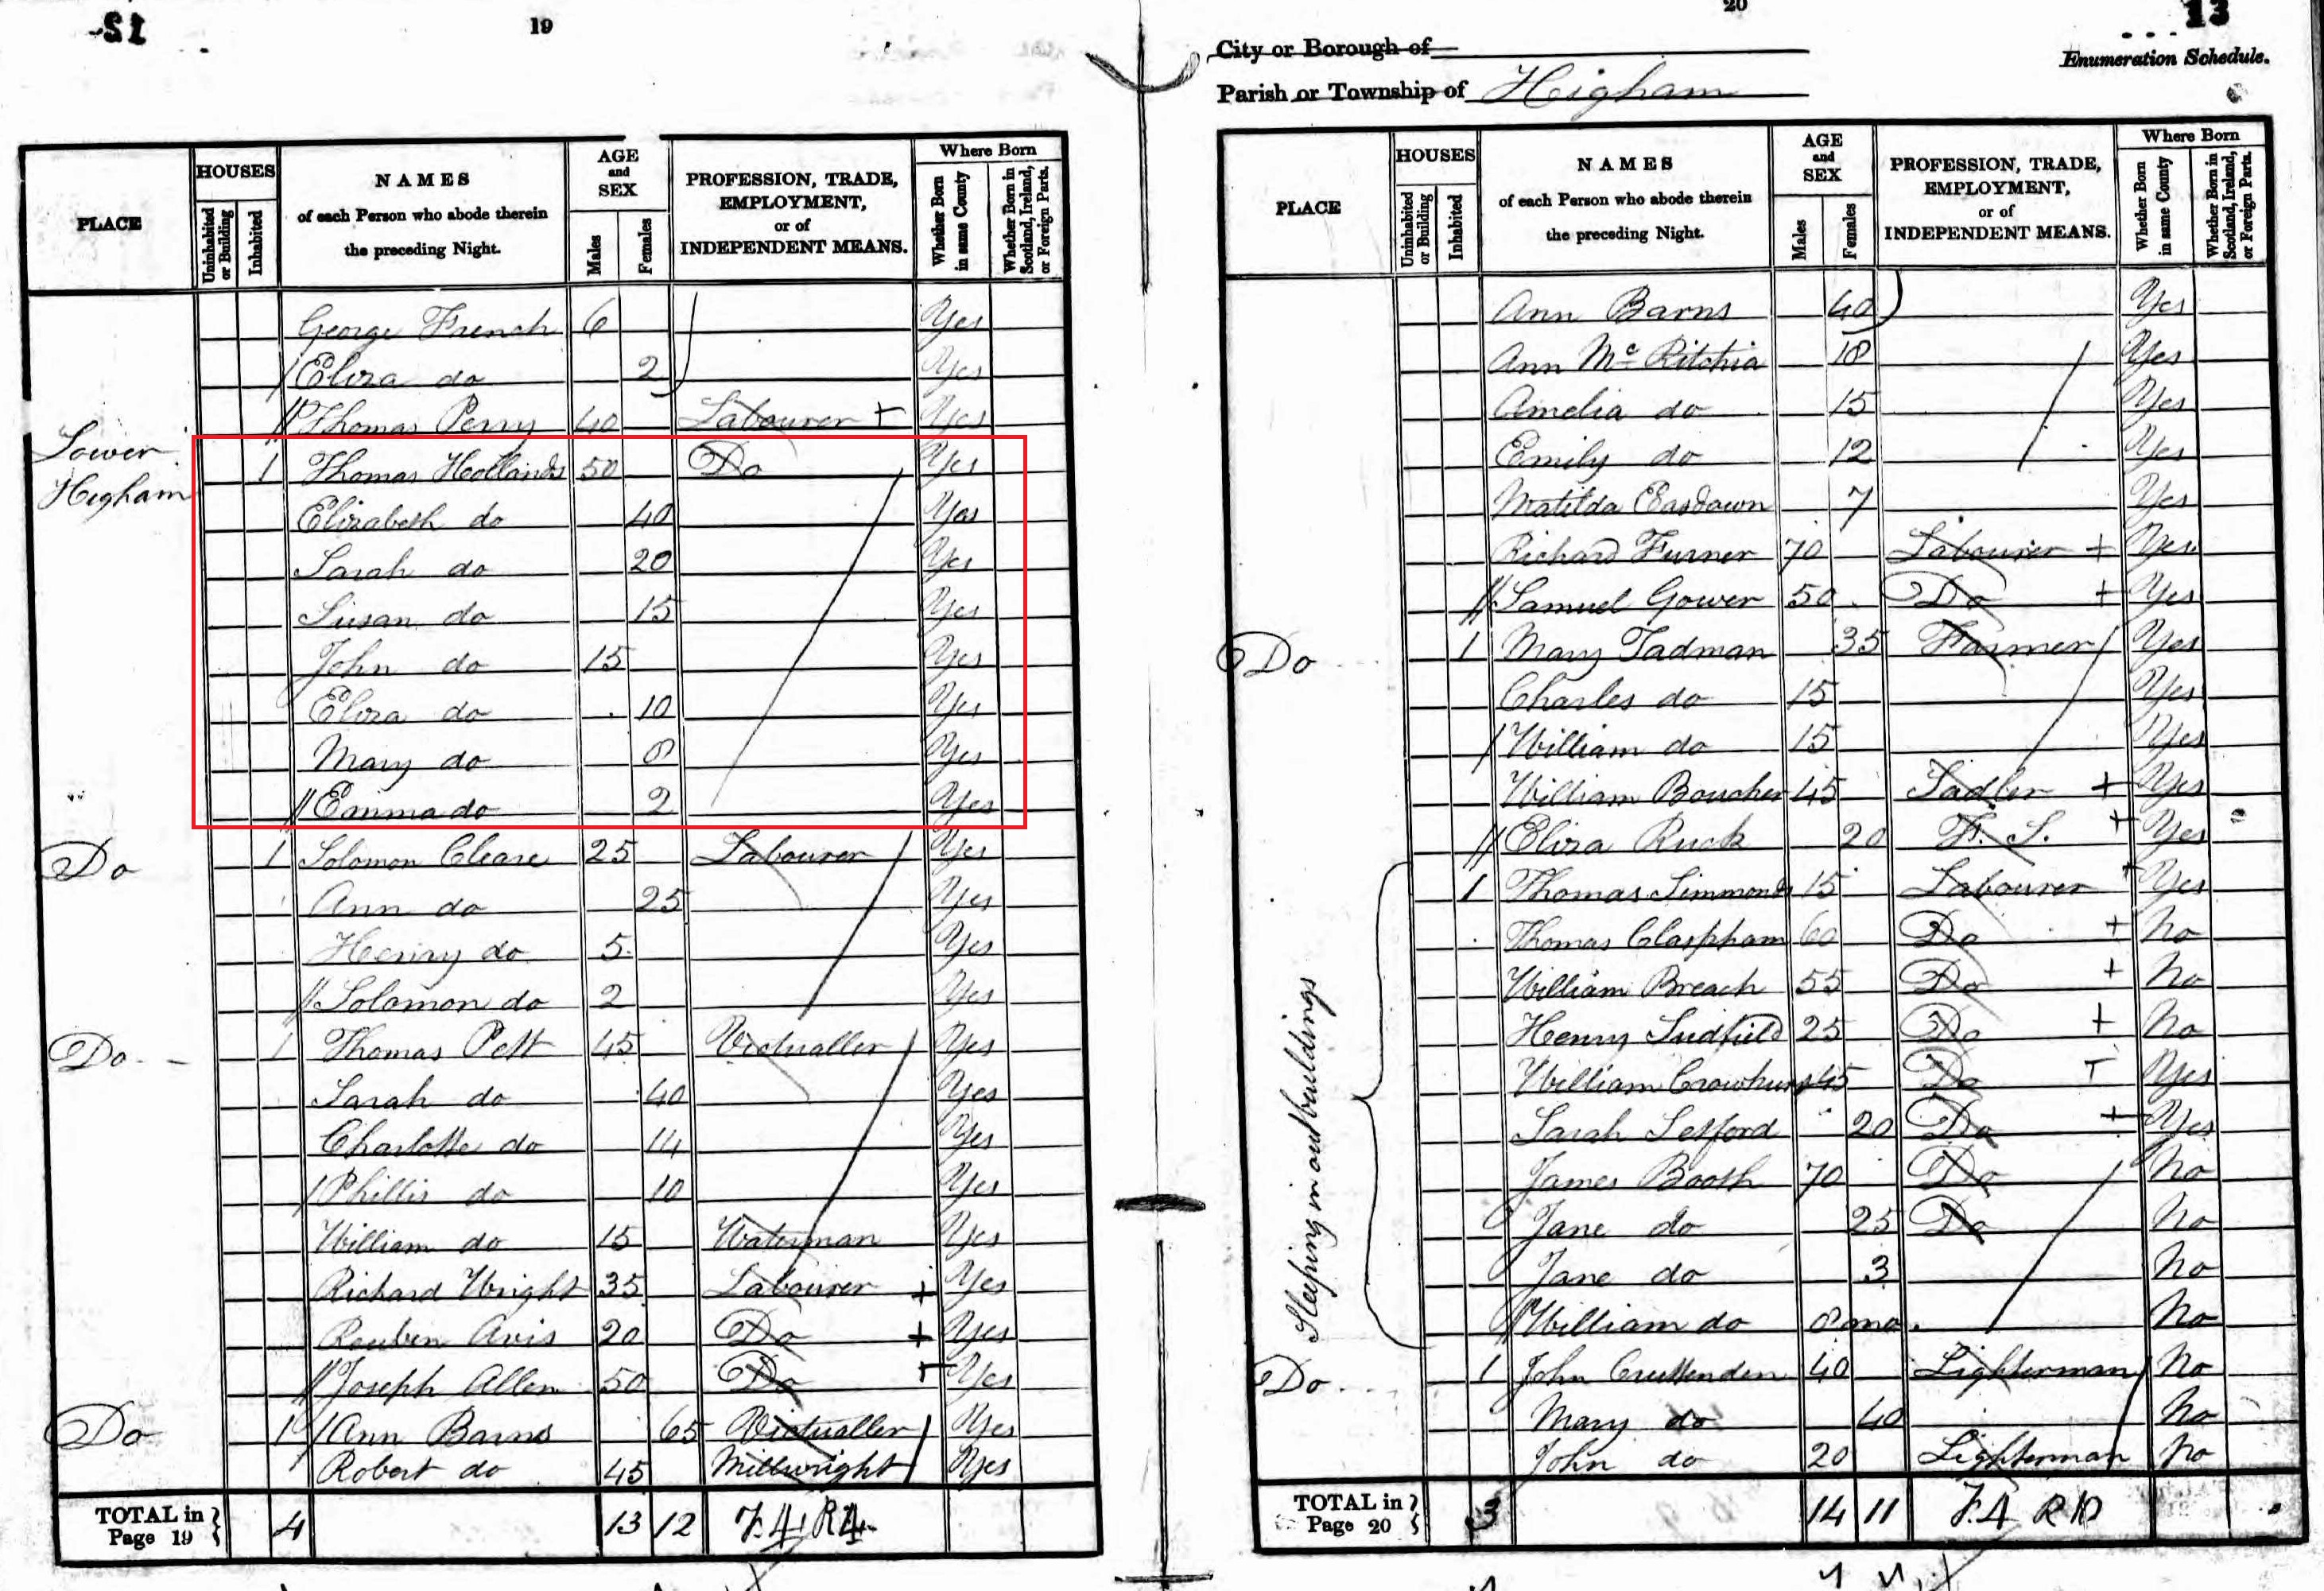 12
19
PLACE
HOUSES
Uninhabited or Building
Inhabited
NAMES
of each Person who abode therein
the preceding Night.
AGE
and
SEX
Males
Females
PROFESSION, TRADE,
EMPLOYMENT,
or of
INDEPENDENT MEANS.
Where Born
Whether Born in same County
Whether Born in Scotland, Ireland, or Foreign Parts.
George French 6 Yes
Eliza do 2 Yes
Thomas Perry 40 Labourer + Yes
Lower Higham 1 Thomas Hollands 50 Do Yes
Elizabeth do 40 Yes
Sarah do 20 Yes
Susan do 15 Yes
John do 15 Yes
Eliza do 10 Yes
Mary do 8 Yes
Emma do 2 Yes
Do 1 Solomon Cleare 25 Labourer Yes
Ann do 25 Yes
Henry do 5 Yes
Solomon do 2 Yes
Do 1 Thomas Pett 45 Victualler Yes
Sarah do 40 Yes
Charlotte do 14 Yes
Phillis do 10 Yes
William do 15 Waterman Yes
Richard Wright 35 Labourer + Yes
Reuben Avis 20 Do + Yes
Joseph Allen 50 Do + Yes
Do 1 Ann Barns 65 Victualler Yes
Robert do 45 Millwright Yes
TOTAL in Page 19 4 13 12 F.4 R4
20
13
City or Borough of
Enumeration Schedule.
Parish or Township of Higham
PLACE
HOUSES
Uninhabited or Building
Inhabited
NAMES
of each Person who abode therein
the preceding Night.
AGE
and
SEX
Males
Females
PROFESSION, TRADE,
EMPLOYMENT,
or of
INDEPENDENT MEANS.
Where Born
Whether Born in same County
Whether Born in Scotland, Ireland, or Foreign Parts.
Ann Barns 40 Yes
Ann Mc Ritchia 18 Yes
Amelia do 15 Yes
Emily do 12 Yes
Matilda Easdown 7 Yes
Richard Furner 70 Labourer + Yes
Samuel Gower 50 Do + Yes
Do 1 Mary Tadman 35 Farmer Yes
Charles do 15 Yes
William do 15 Yes
William Boucher 45 Sadler + Yes
Eliza Ruck 20 F. S. + Yes
Sleeping in outbuildings
1 Thomas Simmonds 15 Labourer + Yes
Thomas Claspham 60 Do + No
William Breach 55 Do + No
Henry 25 Do + No
William Crowhurst 45 Do + Yes
Sarah 20 Do + Yes
James Booth 70 Do No
Jane do 25 Do No
Jane do 3 No
William do 8 mo. No
Do 1 John Cruttenden 40 Lighterman No
Mary do 40 No
John do 20 Lighterman No
TOTAL in Page 20 3 14 11 F.4